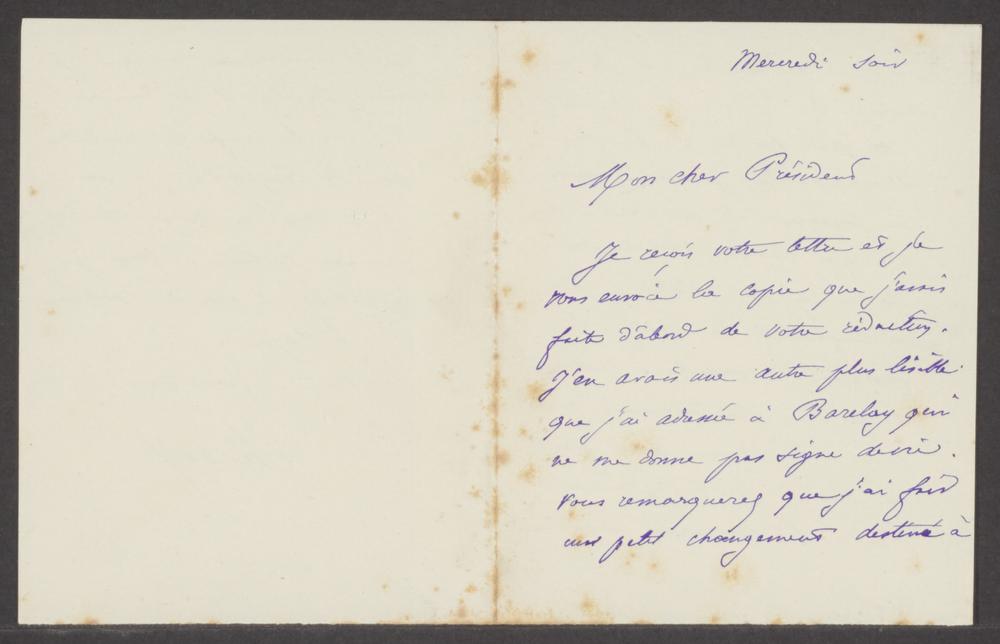 Mercredi soir
Mon cher Président
Je reçois votre lettre et je
vous envoie la copie que j'avais
faite d'abord de votre rédaction.
J'en avais une autre plus lisible
que j'ai adressée à Barclay qui
ne me donne pas signe de vie.
Vous remarquerez que j'ai fait
un petit changement destiné à